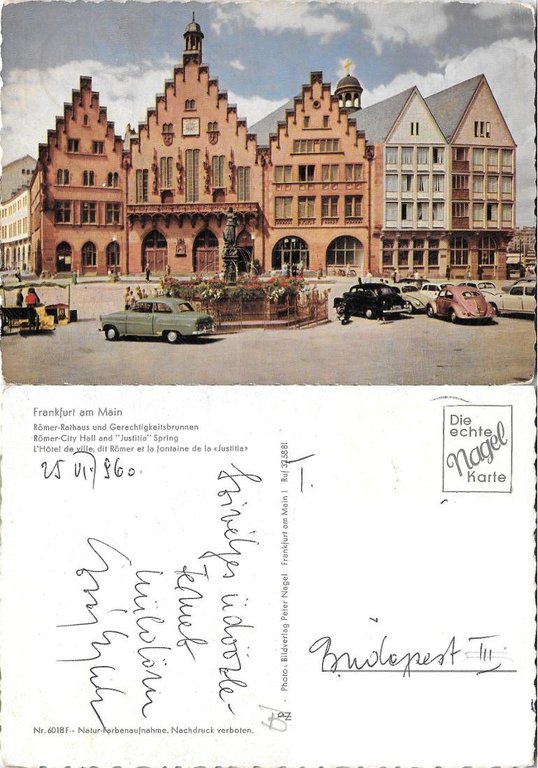 Frankfurt am Main
Römer-Rathaus und Gerechtigkeitsbrunnen
Römer-City Hall and "Justitia" Spring
L'Hôtel de ville, dit Römer et la fontaine de la «Justitia»
25 VI. 960.
Szivélyes üdvözle-
temet
küldöm
Photo: Bildverlag Peter Nagel Frankfurt am Main I Ruf 335881
PZ
Die
echte
Nagel
Karte
Budapest III
Nr. 6018F - Natur-Farbenaufnahme. Nachdruck verboten.